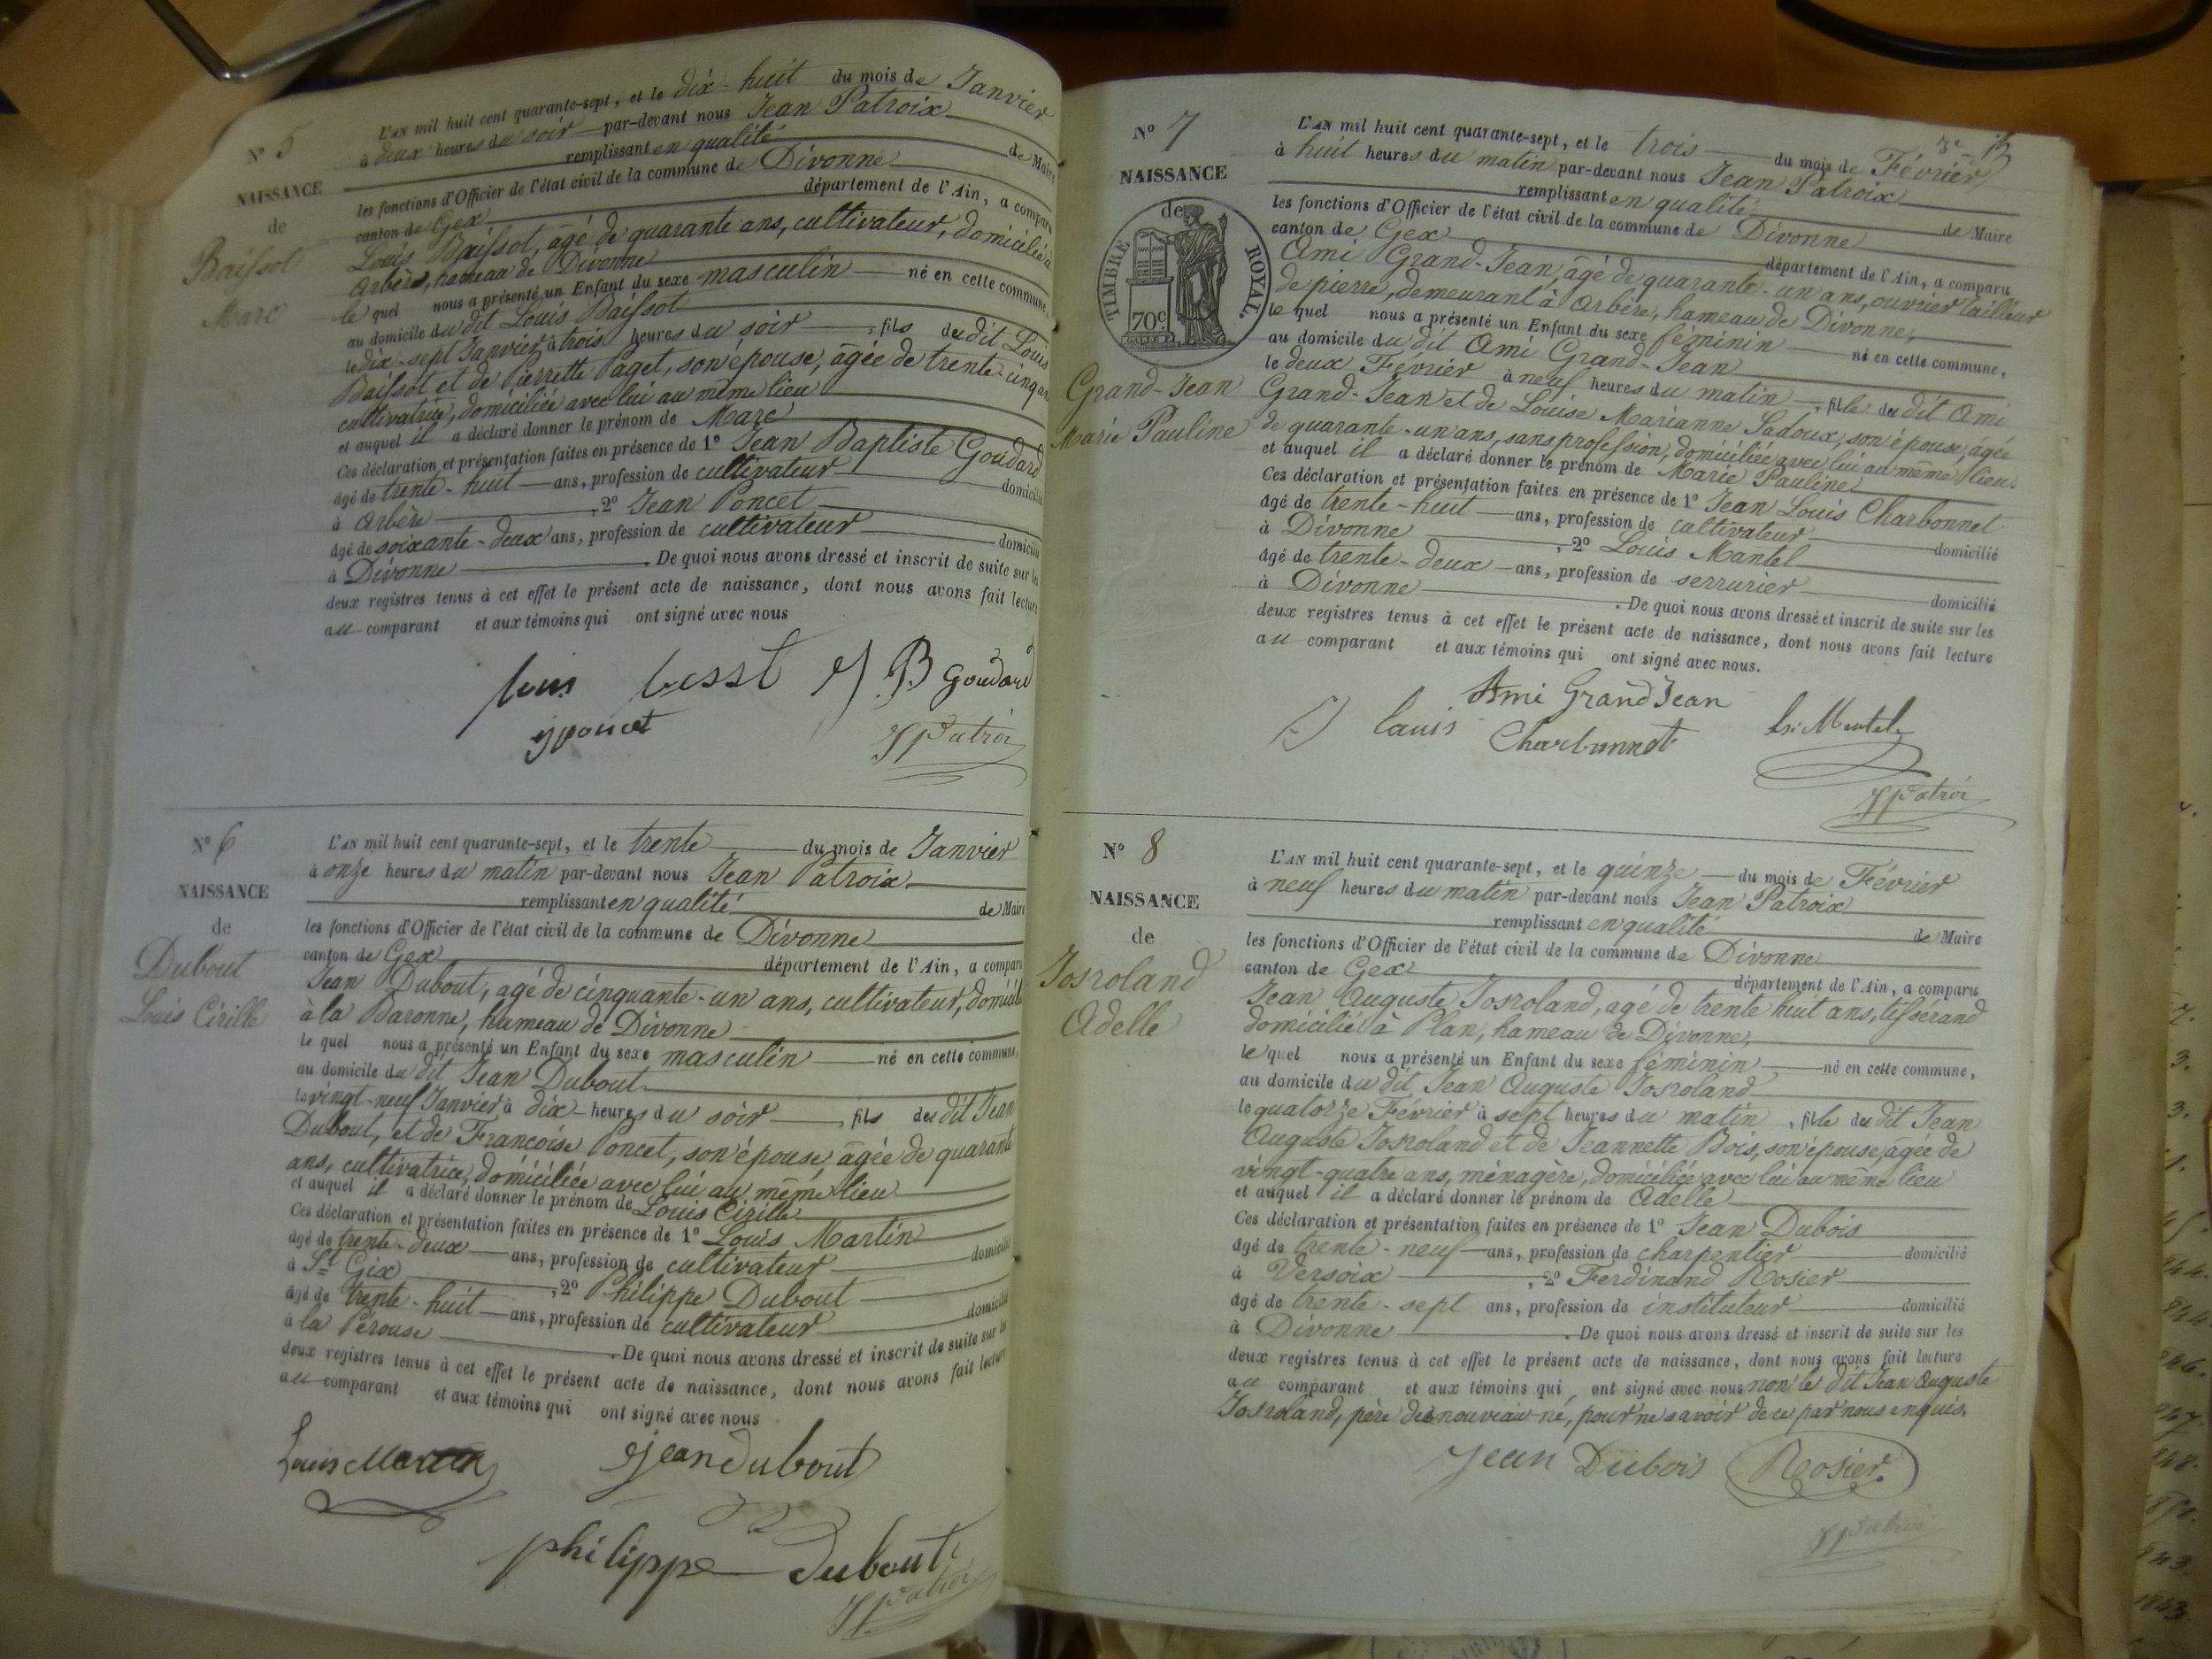 N° 5
NAISSANCE
de
Baissot
Marc
L'AN mil huit cent quarante-sept, et le dix-huit du mois de Janvier
à deux heures du soir par-devant nous Jean Patroix
remplissant en qualité de Maire
les fonctions d'Officier de l'état civil de la commune de Divonne
canton de Gex département de l'Ain, a comparu
Louis Baissot, agé de quarante ans, cultivateur, domicilié à
Arbère, hameau de Divonne
le quel nous a présenté un Enfant du sexe masculin né en cette commune,
au domicile du dit Louis Baissot
le dix-sept Janvier à trois heures du soir, fils du dit Louis
Baissot et de Pierrette Paget, son épouse, âgée de trente-cinq ans
cultivatrice, domiciliée avec lui au même lieu
et auquel il a déclaré donner le prénom de Marc
Ces déclaration et présentation faites en présence de 1° Jean Baptiste Goudard
âgé de trente-huit ans, profession de cultivateur domicilié
à Arbère, 2° Jean Poncet
âgé de soixante-deux ans, profession de cultivateur domicilié
à Divonne. De quoi nous avons dressé et inscrit de suite sur les
deux registres tenus à cet effet le présent acte de naissance, dont nous avons fait lecture
au comparant et aux témoins qui ont signé avec nous
J B Goudard
j poncet
JPatroi
N° 6
NAISSANCE
de
Dubout
Louis Cirille
L'AN mil huit cent quarante-sept, et le trente du mois de Janvier
à onze heures du matin par-devant nous Jean Patroix
remplissant en qualité de Maire
les fonctions d'Officier de l'état civil de la commune de Divonne
canton de Gex département de l'Ain, a comparu
Jean Dubout, agé de cinquante-un ans, cultivateur, domicilié
à la Baronne, hameau de Divonne
le quel nous a présenté un Enfant du sexe masculin né en cette commune,
au domicile du dit Jean Dubout
le vingt-neuf Janvier à dix heures du soir, fils du dit Jean
Dubout, et de Françoise Poncet, son épouse, âgée de quarante
ans, cultivatrice, domiciliée avec lui au même lieu
et auquel il a déclaré donner le prénom de Louis Cirille
Ces déclaration et présentation faites en présence de 1° Louis Martin
âgé de trente-deux ans, profession de cultivateur domicilié
à St Gix, 2° Philippe Dubout
âgé de trente-huit ans, profession de cultivateur domicilié
à la Pérouse. De quoi nous avons dressé et inscrit de suite sur les
deux registres tenus à cet effet le présent acte de naissance, dont nous avons fait lecture
au comparant et aux témoins qui ont signé avec nous
Louis Martin jean dubout
philippe dubout
JPatroi
N° 7
NAISSANCE
de
TIMBRE ROYAL
70c
Grand-Jean
Marie Pauline
L'AN mil huit cent quarante-sept, et le trois du mois de Février
à huit heures du matin par-devant nous Jean Patroix
remplissant en qualité de Maire
les fonctions d'Officier de l'état civil de la commune de Divonne
canton de Gex département de l'Ain, a comparu
Ami Grand-Jean, âgé de quarante-un ans, ouvrier tailleur
de pierre, demeurant à Arbère, hameau de Divonne,
le quel nous a présenté un Enfant du sexe féminin né en cette commune,
au domicile du dit Ami Grand-Jean
le deux Février à neuf heures du matin, fille du dit Ami
Grand-Jean et de Louise Marianne Sadoux, son épouse, âgée
de quarante-un ans, sans profession, domiciliée avec lui au même lieu
et auquel il a déclaré donner le prénom de Marie Pauline
Ces déclaration et présentation faites en présence de 1° Jean Louis Charbonnet
âgé de trente-huit ans, profession de cultivateur domicilié
à Divonne, 2° Louis Mantel
âgé de trente-deux ans, profession de serrurier domicilié
à Divonne. De quoi nous avons dressé et inscrit de suite sur les
deux registres tenus à cet effet le présent acte de naissance, dont nous avons fait lecture
au comparant et aux témoins qui ont signé avec nous.
Ami Grand Jean
J louis Charbonnet Ls Mantel
JPatroi
N° 8
NAISSANCE
de
Josroland
Adelle
L'AN mil huit cent quarante-sept, et le quinze du mois de Février
à neuf heures du matin par-devant nous Jean Patroix
remplissant en qualité de Maire
les fonctions d'Officier de l'état civil de la commune de Divonne
canton de Gex département de l'Ain, a comparu
Jean Auguste Josroland, agé de trente huit ans, tisserand
domicilié à Plan, hameau de Divonne,
le quel nous a présenté un Enfant du sexe féminin né en cette commune,
au domicile du dit Jean Auguste Josroland
le quatorze Février à sept heures du matin, fille du dit Jean
Auguste Josroland et de Jeannette Bois, son épouse, âgée de
vingt-quatre ans, ménagère, domiciliée avec lui au même lieu
et auquel il a déclaré donner le prénom de Adelle
Ces déclaration et présentation faites en présence de 1° Jean Dubois
âgé de trente-neuf ans, profession de charpentier domicilié
à Versoix, 2° Ferdinand Rosier
âgé de trente-sept ans, profession de instituteur domicilié
à Divonne. De quoi nous avons dressé et inscrit de suite sur les
deux registres tenus à cet effet le présent acte de naissance, dont nous avons fait lecture
au comparant et aux témoins qui ont signé avec nous non le dit Jean Auguste
Josroland, père du nouveau-né, pour ne savoir de ce par nous enquis.
Jean Dubois Rosier
JPatroi